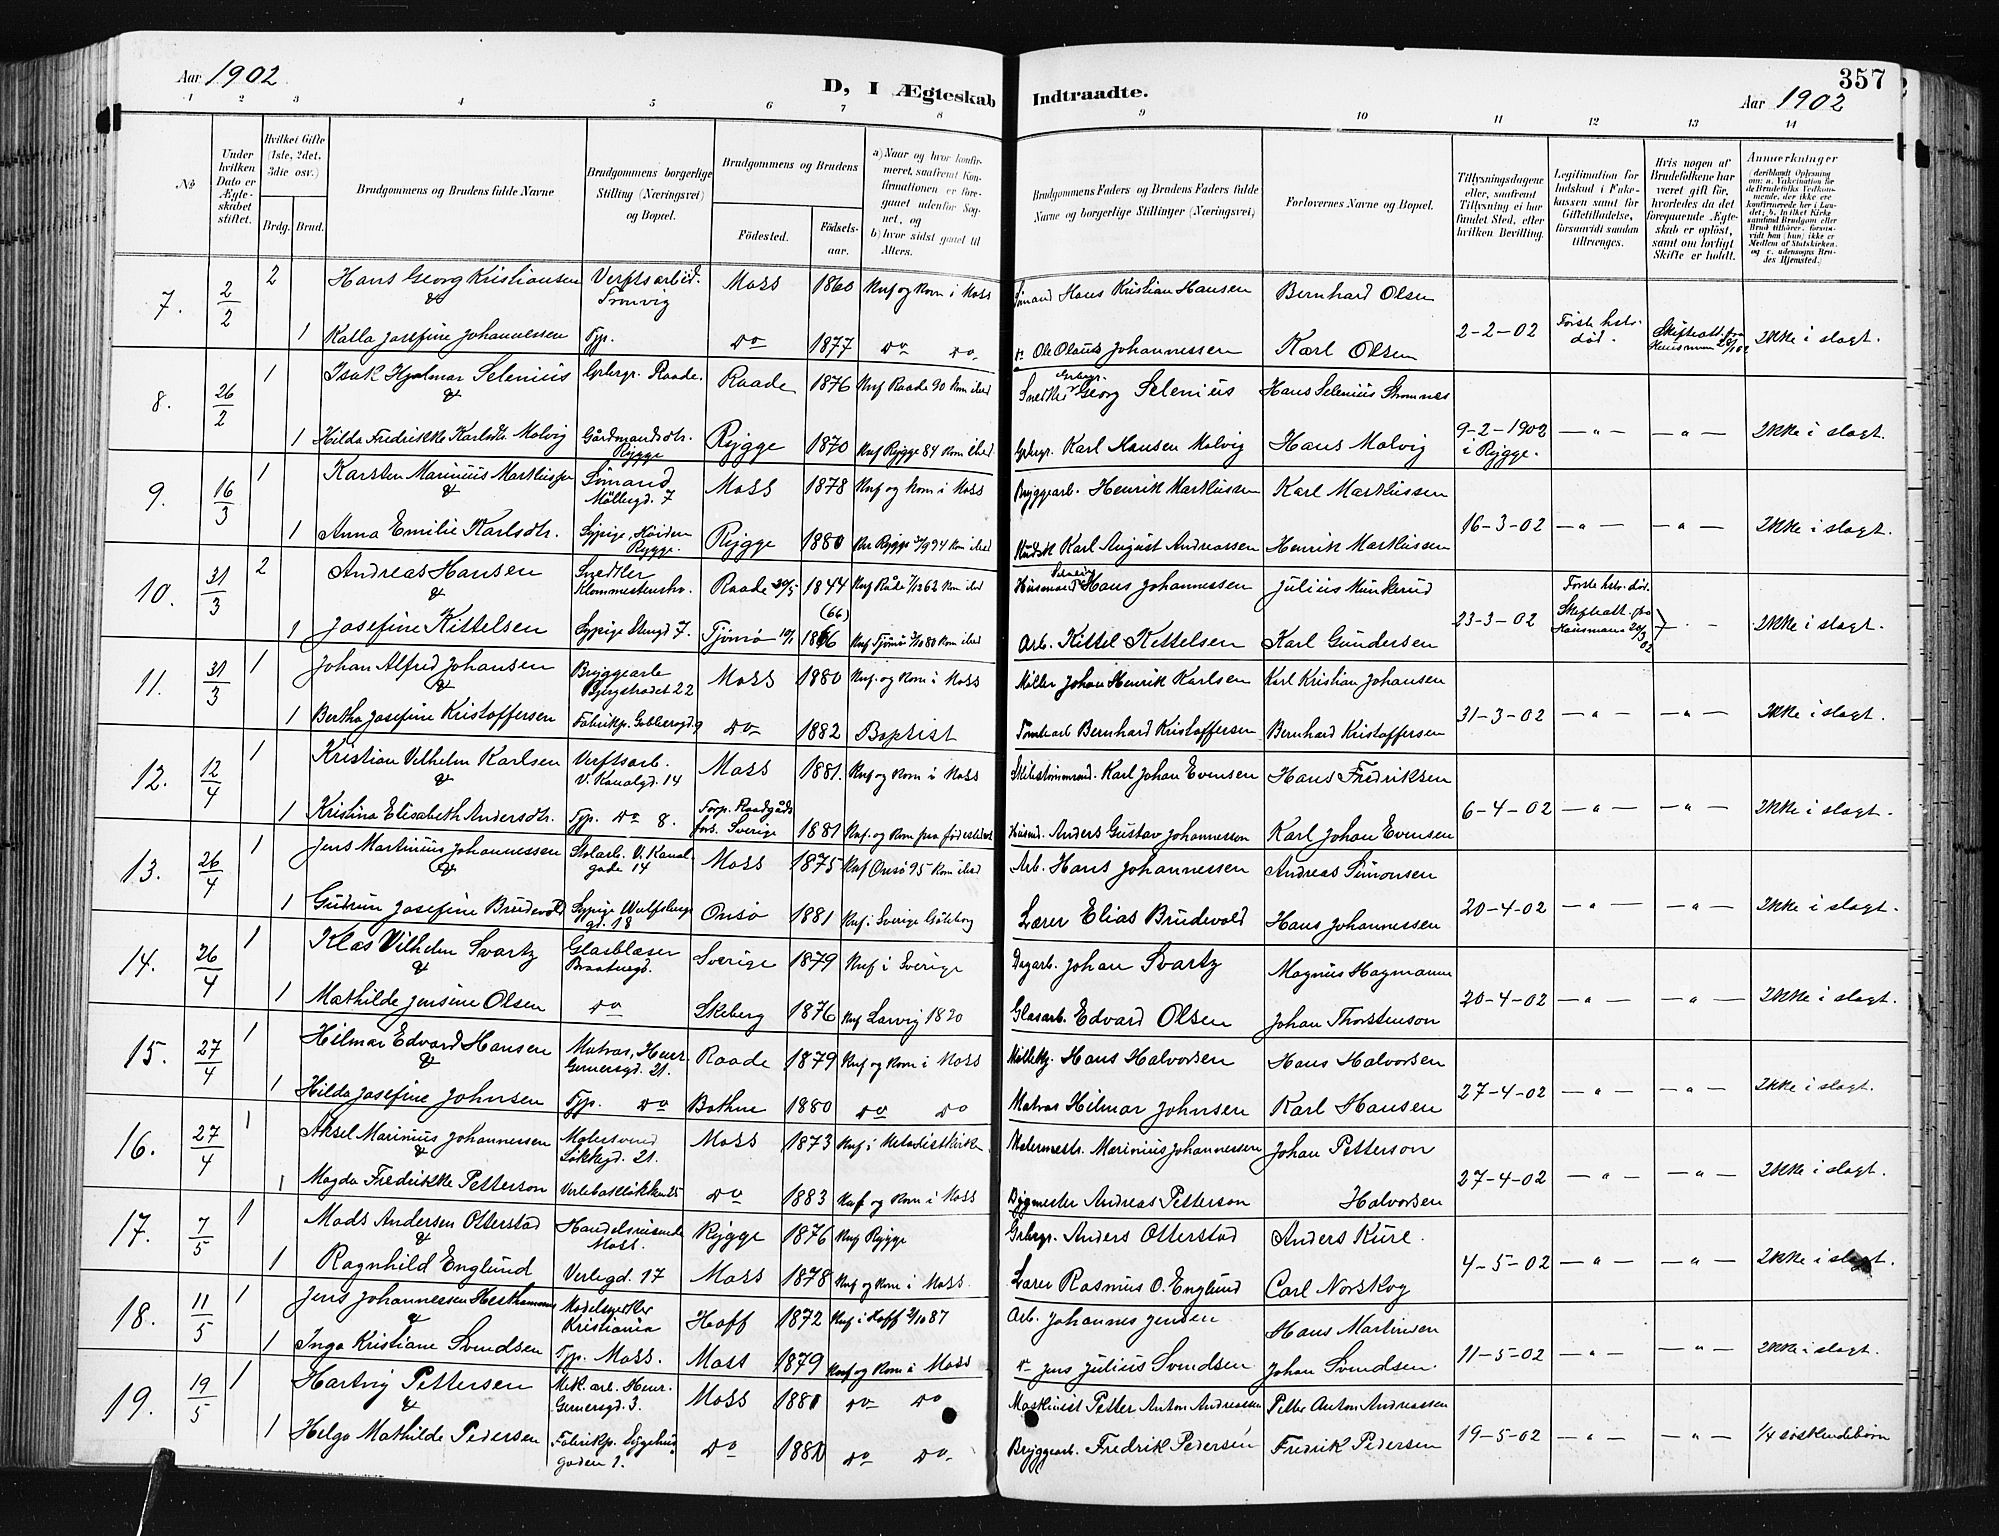 Aar 1902
D, I Ægteskab Indtraadte.
Aar 1902
357
1 2 3 4 5 6 7 8 9 10 11 12 13 14
No
Under hvilken Dato er Ægteskabet stiftet.
Hvilket Gifte (1ste, 2det, 3die osv.)
Brdg. Brud.
Brudgommens og Brudens fulde Navne
Brudgommens borgerlige Stilling (Næringsvei) og Bopæl.
Brudgommens og Brudens
Fødested.
Fødselsaar.
a) Naar og hvor konfirmeret, saafremt Konfirmationen er foregaaet udenfor Sognet, og
b) hvor sidst gaaet til Alters.
Brudgommens Faders og Brudens Faders fulde Navne og borgerlige Stillinger (Næringsvei)
Forlovernes Navne og Bopæl.
Tillysningsdagene eller, saafremt Tillysning ei har fundet Sted, efter hvilken Bevilling.
Legitimation for Indskud i Enkekassen samt for Giftetilladelse, forsaavidt saadan tiltrænges.
Hvis nogen af Brudefolkene har været gift før, hvorledes da det foregaaende Ægteskab er opløst, samt om lovligt Skifte er holdt.
Anmærkninger
(deriblandt Oplysning om: a. Vakcination for de Brudefolks Vedkommende, der ikke ere konfirmerede her i Landet; b. hvilket Kirkesamfund Brudgom eller Brud tilhører, forsaavidt han (hun) ikke er Medlem af Statskirken, og c. udensogns Brudes Hjemsted.)
7. 2/2 2 Hans Georg Kristiansen Verftsarbeid. Tronvig Moss 1860 Knf og Kom i Moss Sømand Hans Kristian Hansen Bernhard Olsen
&
1 Kalla Josefine Johannessen Tjp. do 1877 do do. Ole Olaus Johannessen Karl Olsen 2-2-02 Første hstr. død. Skifteatt. fra Ikke i slagt.
8. 26/2 1 Isak Hjalmar Selenius Grbrgr. Raade. Raade 1876 Knf Raade 90 Kom ibid Snedker Grbrgr. Georg Selenius Hans Selenius Stomnes
&
1 Hilda Fredrikke Karlsdtr. Molvig Gårdmandsdtr. Rygge Rygge 1870 Knf Rygge 84 Kom ibid. Grbrgr. Karl Hansen Molvig Hans Molvig 9-2-1902 i Rygge. — " — — " — Ikke i slagt.
9. 16/3 1 Karsten Marinius Markussen Sømand Møllegd. 7 Moss 1878 Knf og Kom i Moss Bryggearb. Henrik Markussen Karl Markussen
&
1 Anna Emilie Karlsdtr. Sypige, Høiden Rygge. Rygge 1880 Knf Rygge 94 Kom ibid Karl August Andreassen Henrik Markussen 16-3-02 — " — — " — Ikke i slagt.
10. 31/3 2 Andreas Hansen Snedker Raade 20/5 1844 Knf Råde 62 Kom ibid Husmand Hans Johannessen Julius Munkerud
&
1 Josefine Kittelsen Sypige Stengd 7. Tjömö 1866 (66) Knf Tjömö 80 Kom ibid Arb. Kittel Kittelsen Karl Gundersen 23-3-02 Første hstr. død. Skifteatt. fra Ikke i slagt.
11. 31/3 1 Johan Alfred Johansen Bryggearb Bergstrædet 22 Moss 1880 Knf. og Kom i Moss Møller Johan Henrik Karlsen Karl Kristian Johansen
&
1 Bertha Josefine Kristoffersen Fabrikp. Gabbersgd. 9 do 1882 Baptist Tomtearb Bernhard Kristoffersen Bernhard Kristoffersen 31-3-02 — " — — " — Ikke i slagt.
12. 12/4 1 Kristian Vilhelm Karlsen Verftsarb. V. Kanalgd. 14 Moss 1881. Knf og Kom i Moss Skibstømmrmd. Karl Johan Evensen Hans Fredriksen
&
1 Kristina Elisabeth Andersdtr. Tjp. do 8. Sverige 1881 Knf. og Kom fra fødestedet Husmd. Anders Gustav Johannesson Karl Johan Evensen 6-4-02 — " — — " — Ikke i slagt.
13. 26/4 1 Jens Martinius Johannessen Stolarb. V. Kanalgade 14 Moss 1875 Knf Onsø 95 Kom ibid Arb. Hans Johannessen Andreas Simonsen
&
1 Gudrun Josefine Brudevold Sypige Wulfsbergsgd. 18 Onsø 1881 Knf. i Sverige Göteborg Lærer Elias Brudevold Hans Johannessen 20-4-02 — " — — " — Ikke i slagt.
14. 26/4 1 Klas Vilhelm Svartz Glasblæser Braatengd. Sverige 1879 Knf i Sverige Dagarb. Johan Svartz Magnus Hagmann
&
1 Mathilde Jensine Olsen do Skeberg 1876 Knf Larvig 1820 Glasarb. Edvard Olsen Johan Thorstenson 20-4-02 — " — — " — Ikke i slagt.
15. 27/4 1 Hilmar Edvard Hansen Matros, Henr. Gernersgd. 21. Raade 1879 Knf og Kom i Moss Hans Halvorsen Hans Halvorsen
&
1 Hilda Josefine Johnsen Tjp. do Bothne 1880 do do Matros Hilmar Johnsen Karl Hansen 27-4-02 — " — — " — Ikke i slagt.
16. 27/4 1 Aksel Marinius Johannessen Malersvend Løkkegd. 21. Moss 1873 Knf i Metodistkirke Malermestr. Marinius Johannessen Johan Petterson
&
1 Magda Fredrikke Petterson Verlebakløkken 25 do 1883 Knf og Kom i Moss Bygmester Andreas Petterson Halvorsen 27-4-02 — " — — " — Ikke i slagt.
17. 7/5 1 Mads Andersen Otterstad Handelsreisende Moss. Rygge 1876 Knf Rygge Grbrgr. Anders Otterstad Anders Kure.
&
1 Ragnhild Englund Verlegd. 17 Moss 1878 Knf og Kom i Moss. Lærer Rasmus O. Englund Carl Norskog 4-5-02 — " — — " — Ikke i slagt.
18. 11/5 1 Jens Johannessen Modelsnekker Kristiania Hoff 1872 Knf i Hoff 87 Arb. Johannes Jensen Hans Martinsen
&
1 Inga Kristiane Svendsen Tjp. Moss. Moss 1879 Knf og Kom i Moss Jens Julius Svendsen Johan Svendsen. 11-5-02 — " — — " — Ikke i slagt.
19. 19/5 1 Hartvig Pettersen Mek. arb. Henr. Gernersgd. 3. Moss 1880 do do Maskinist Petter Anton Andreassen Petter Anton Andreassen
&
1 Helga Mathilde Pedersen Fabrikp. Sygehusgaden 1. do 1880 do do. Bryggearb. Fredrik Pedersen Fredrik Pedersen 19-5-02 — " — — " — 1/4 söskendebörn